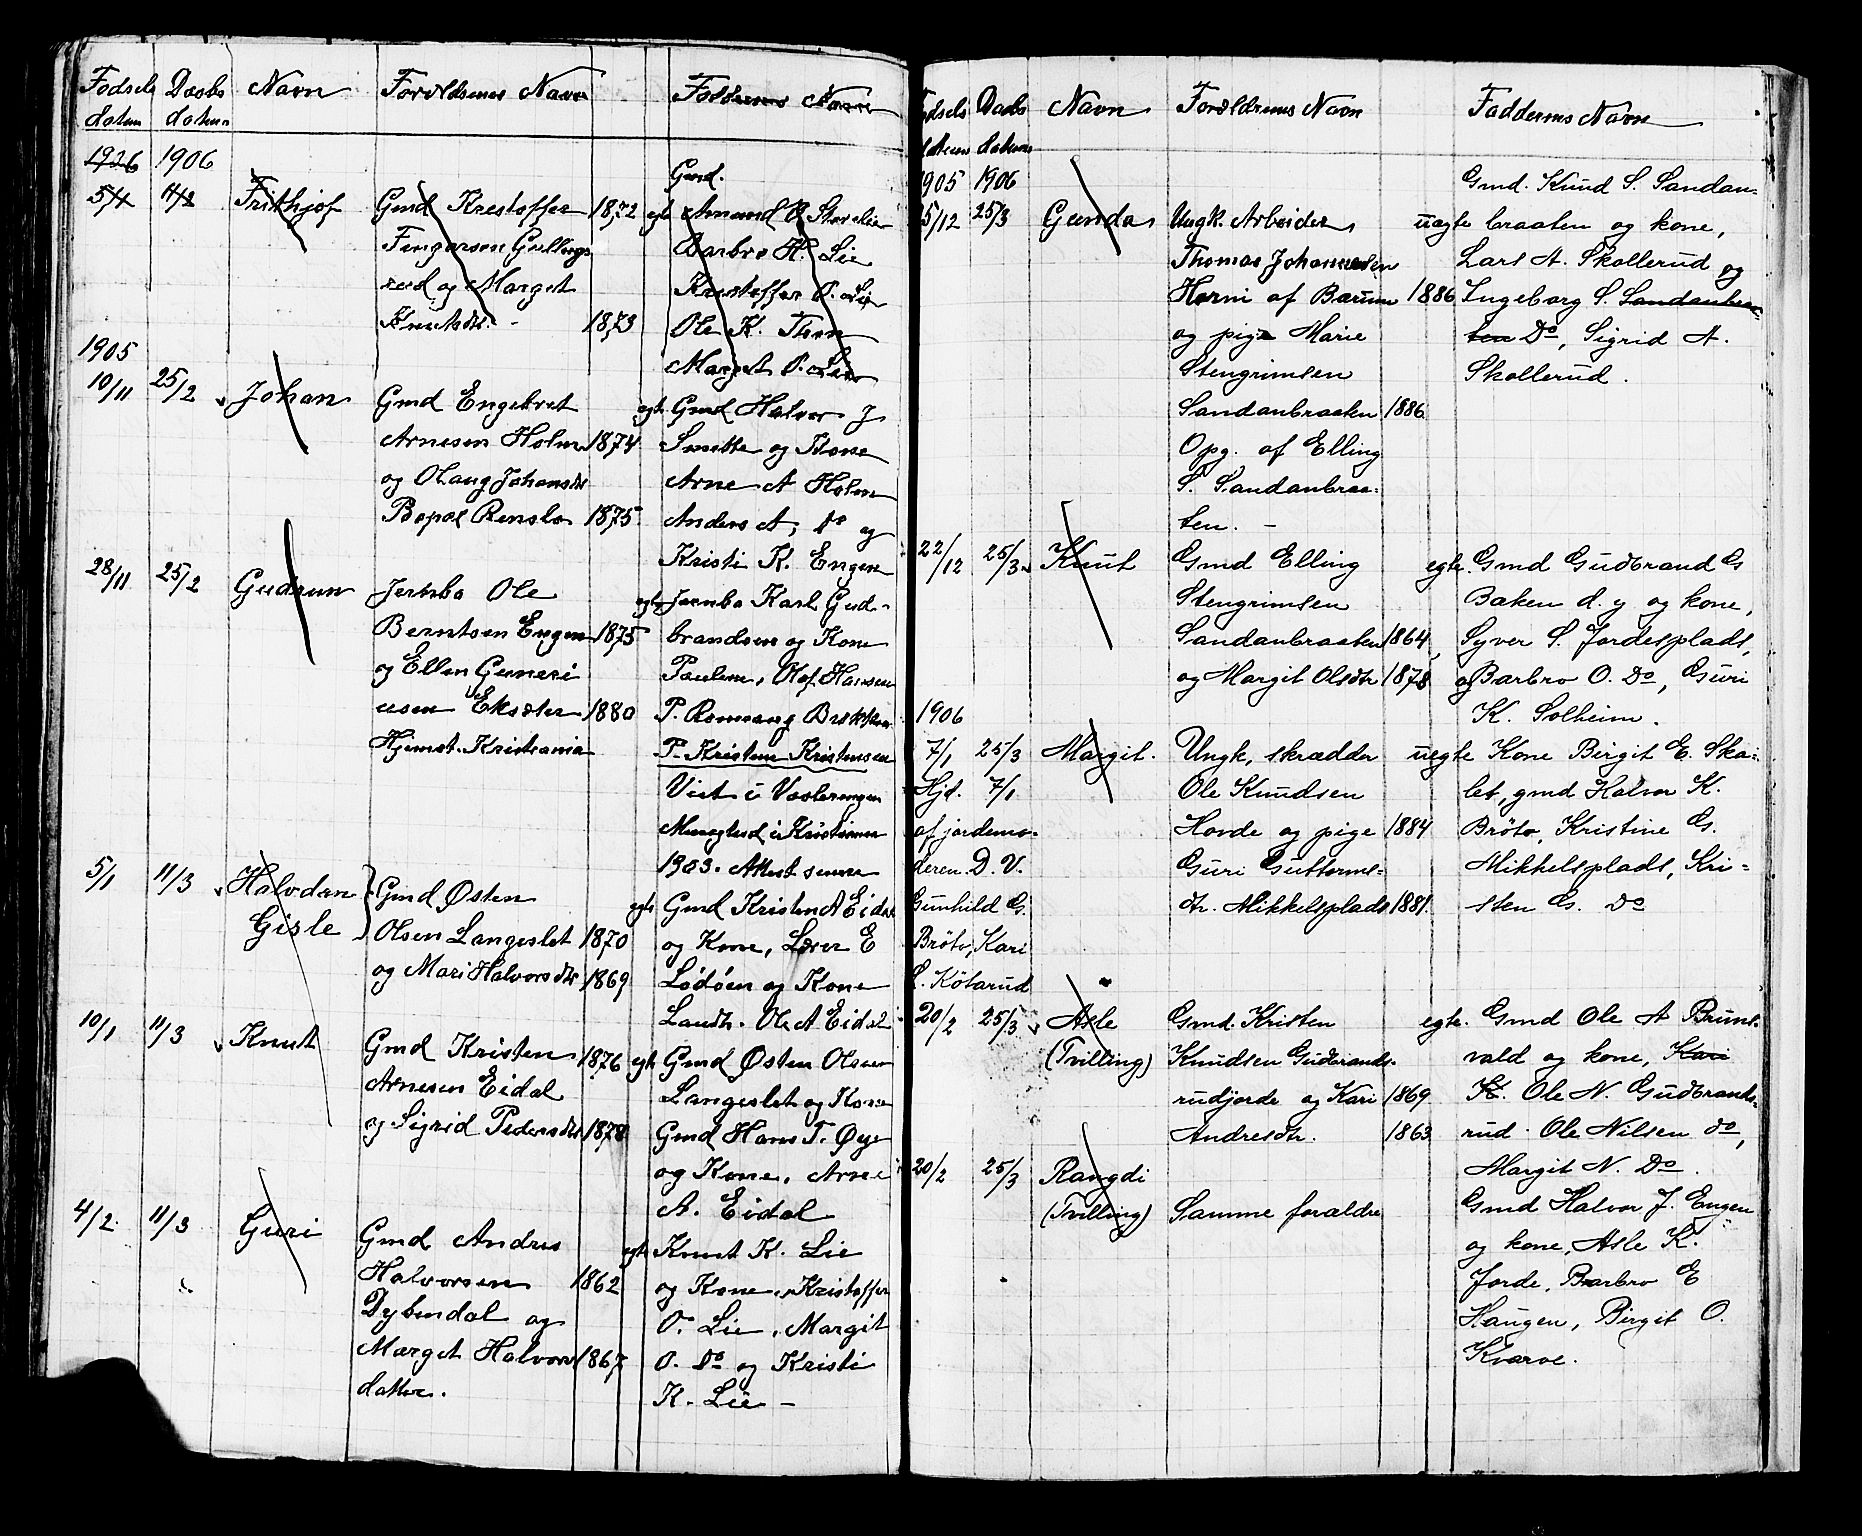 Fødsels Daabs Navn Forældrenes Navn Faddernes Navn
datum datum
1906 1906 Gmd.
5/1 11/2 Frithjof Gmd Kristoffer 1872 egte Amund O. Storelie
Fingarsen Gulbrgs Barbro H. Lie
rud og Marget Kristoffer O. Lie
Knutsdtr. - 1873 Ole K. Thon
1905 Marget O. Lie
10/11 25/2 Johan Gmd Engebret egte Gmd Halvor J
Arnesen Holm 1874 Smette og Kone
og Olaug Johansdtr Arne A Holm
1875 Anders A, Do og
Kristi K. Engen
28/11 25/2 Gudrun Jernba Ole egte Jernba Karl Gud-
Berntsen Engen 1875 brandsen og Kone
og Ellen Paulene, Olaf Hansen
1880 P. Romnang
Hjemst. Kristiania P. Kristian Kristensen
Viet i
Menighed i Kristiania
1903. Attest senere
5/1 11/3 Halvdan Gmd Østen egte Gmd Kristen A Eidal
Gisle Olsen Langeslet 1870 og Kone, Lærer E
og Mari Halvorsdtr 1869 Lødøen og Kone
Landh. Ole A Eidal
10/1 11/3 Knut Gmd Kristen 1876 egte Gmd Østen Olsen
Arnesen Eidal Langeslet og Kone
og Sigrid Pedersdtr 1878 Gmd Hans T. Øye
og Kone, Arne
A. Eidal
4/2 11/3 Guri Gmd Andres egte Knut K. Lie
Halvorsen 1862 og Kone, Kristoffer
Dybendal og O. Lie, Margit
Marget Halvors 1867 O. Do og Kristi
datter. K. Lie -
Fødsels Daabs Navn Forældrenes Navn Faddernes Navn
datum datum
1905 1906 Gmd. Knud S. Sandan-
15/12 25/3 Gunda Ungk. Arbeider uegte braaten og kone,
Thomas Johannesen Lars A. Skollerud og
Horni af Bærum 1886 Ingeborg S. Sandanbraa-
og pige Marie ten Do, Sigrid A.
Stengrimsen Skollerud.
Sandanbraaten 1886
Opg. af Elling
S. Sandanbraa-
ten. -
22/12 25/3 Knut Gmd Elling egte. Gmd Gudbrand G
Stengrimsen Baken d. y og kone,
Sandanbraaten 1864, Syver S. Jordesplads,
og Margit Olsdtr 1878 og Barbro O. Do, Guri
1906 K. Solheim.
7/1 25/3 Margit. Ungk, skrædder uegte Kone Birgit E. Ska-
Hjd. 7/1 Ole Knudsen let, gmd Halvor K.
af jordemo- Hovde og pige 1884 Bröto, Kristine G.
deren D. V. Guri Guttorms- Mikkelsplads, Kri-
Gunhild G. dtr. Mikkelsplads 1881. sten G. Do
Bröto, Kari
S. Kötarud
20/2 25/3 Asle Gmd. Kristen egte. Gmd Ole A Bruns-
(Tvilling) Knudsen Gudbrands- vald og kone, Kari
rudjorde og Kari 1869 K. Ole N. Gudbrands-
Andresdtr. 1863 rud. Ole Nilsen do,
20/2 25/3 Rangdi Margit N. Do.
(Tvilling) Samme forældre Gmd Halvor J. Engen
og kone, Asle K.
Jorde, Barbro E
Haugen, Birgit O.
Kvarve.